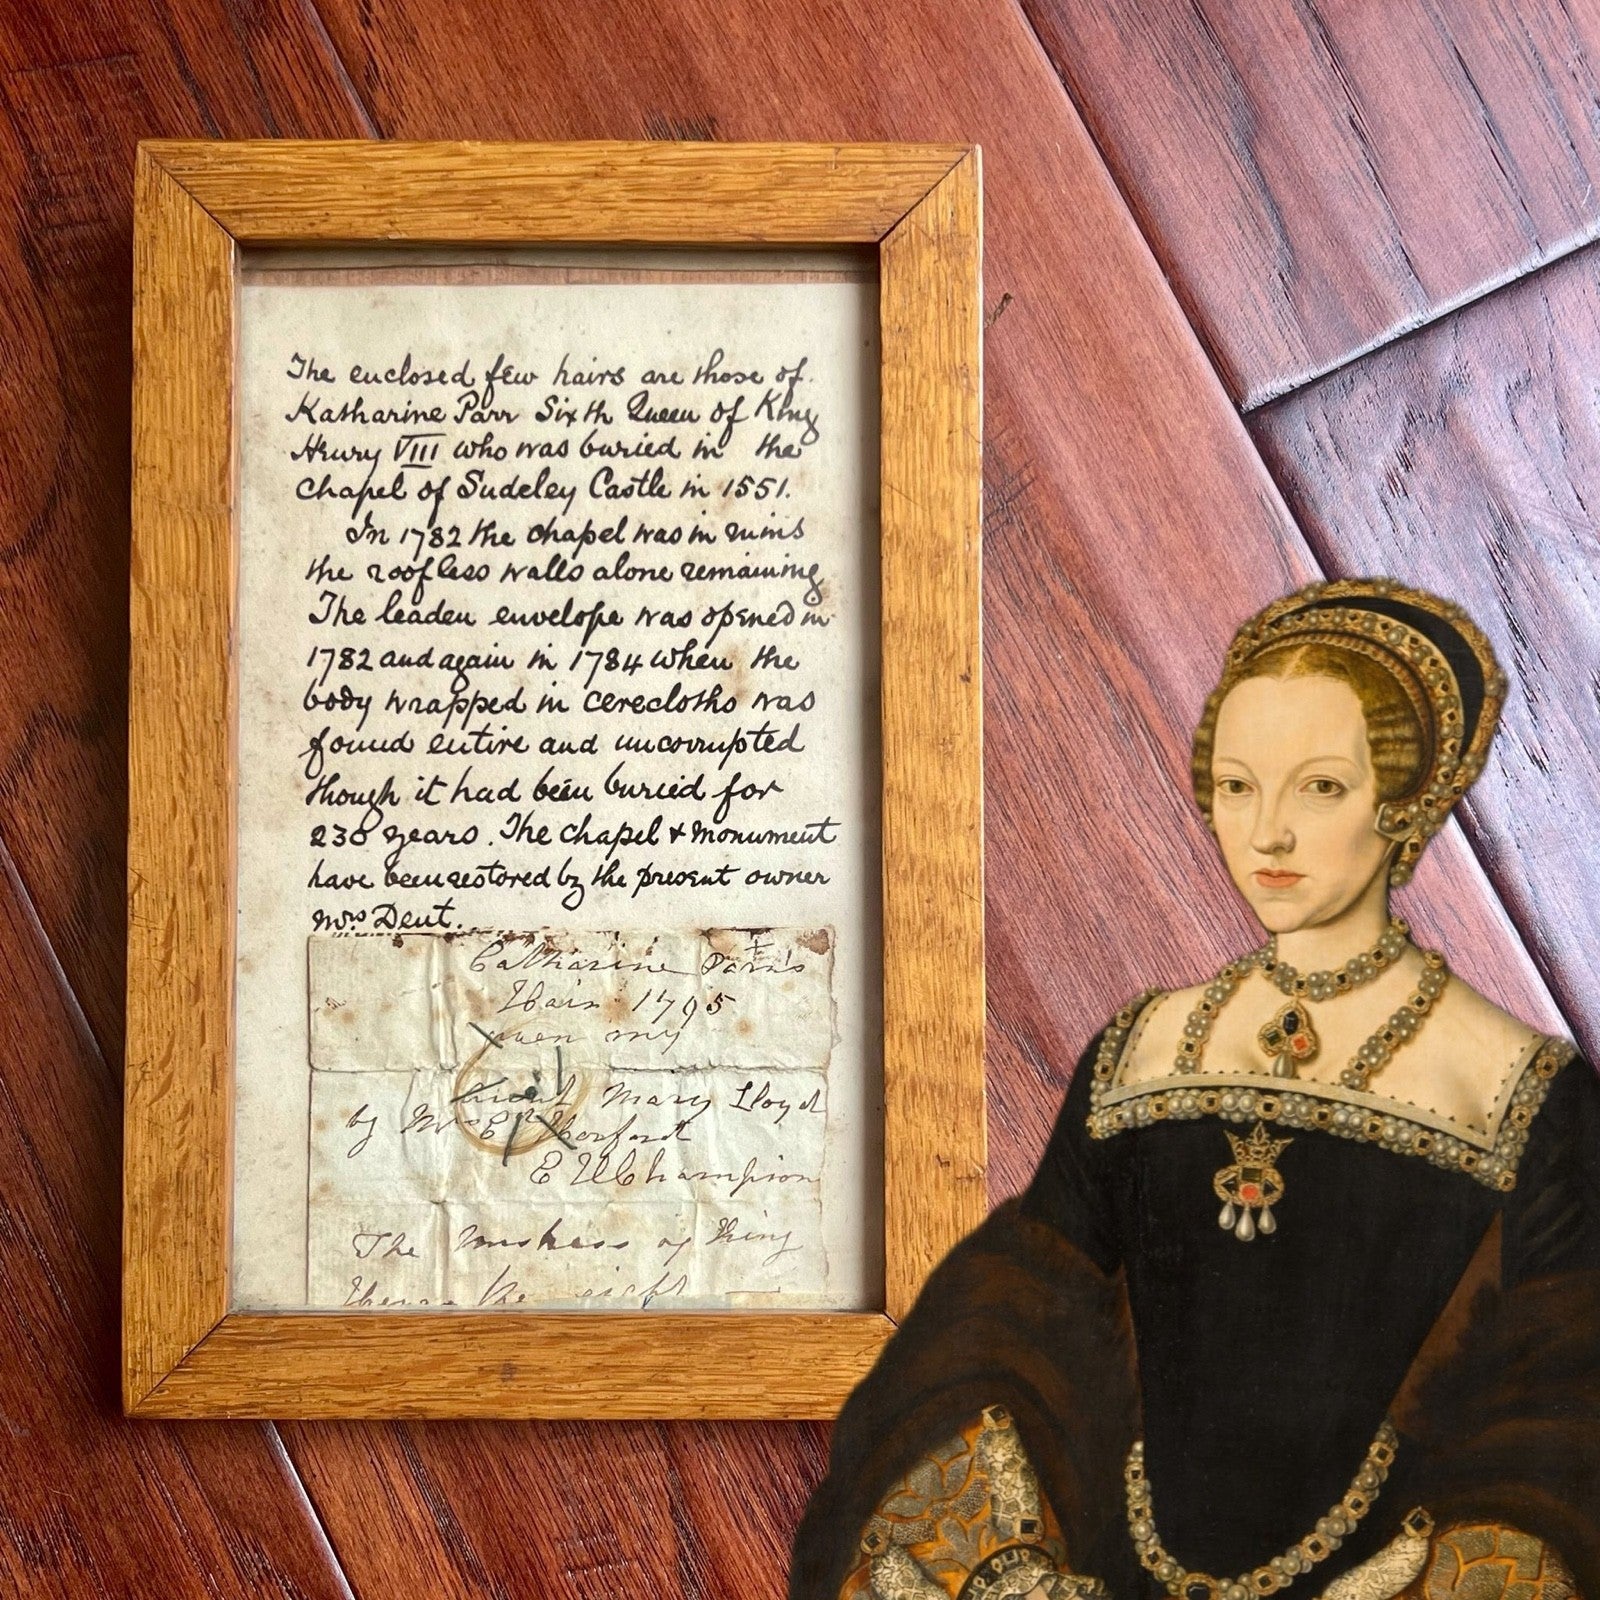 The enclosed few hairs are those of
Katharine Parr Sixth Queen of King
Henry VIII who was buried in the
Chapel of Sudeley Castle in 1551.
In 1782 the chapel was in ruins
the roofless walls alone remaining
The leaden envelope was opened in
1782 and again in 1784 when the
body wrapped in cerecloths was
found entire and uncorrupted
though it had been buried for
230 years. The chapel & monument
have been restored by the present owner
Mrs. Dent.
Catharine Parr's
Hair 1795
given my
Mary Lloyd
by Mrs Harford
E Champion
The of King
the eight